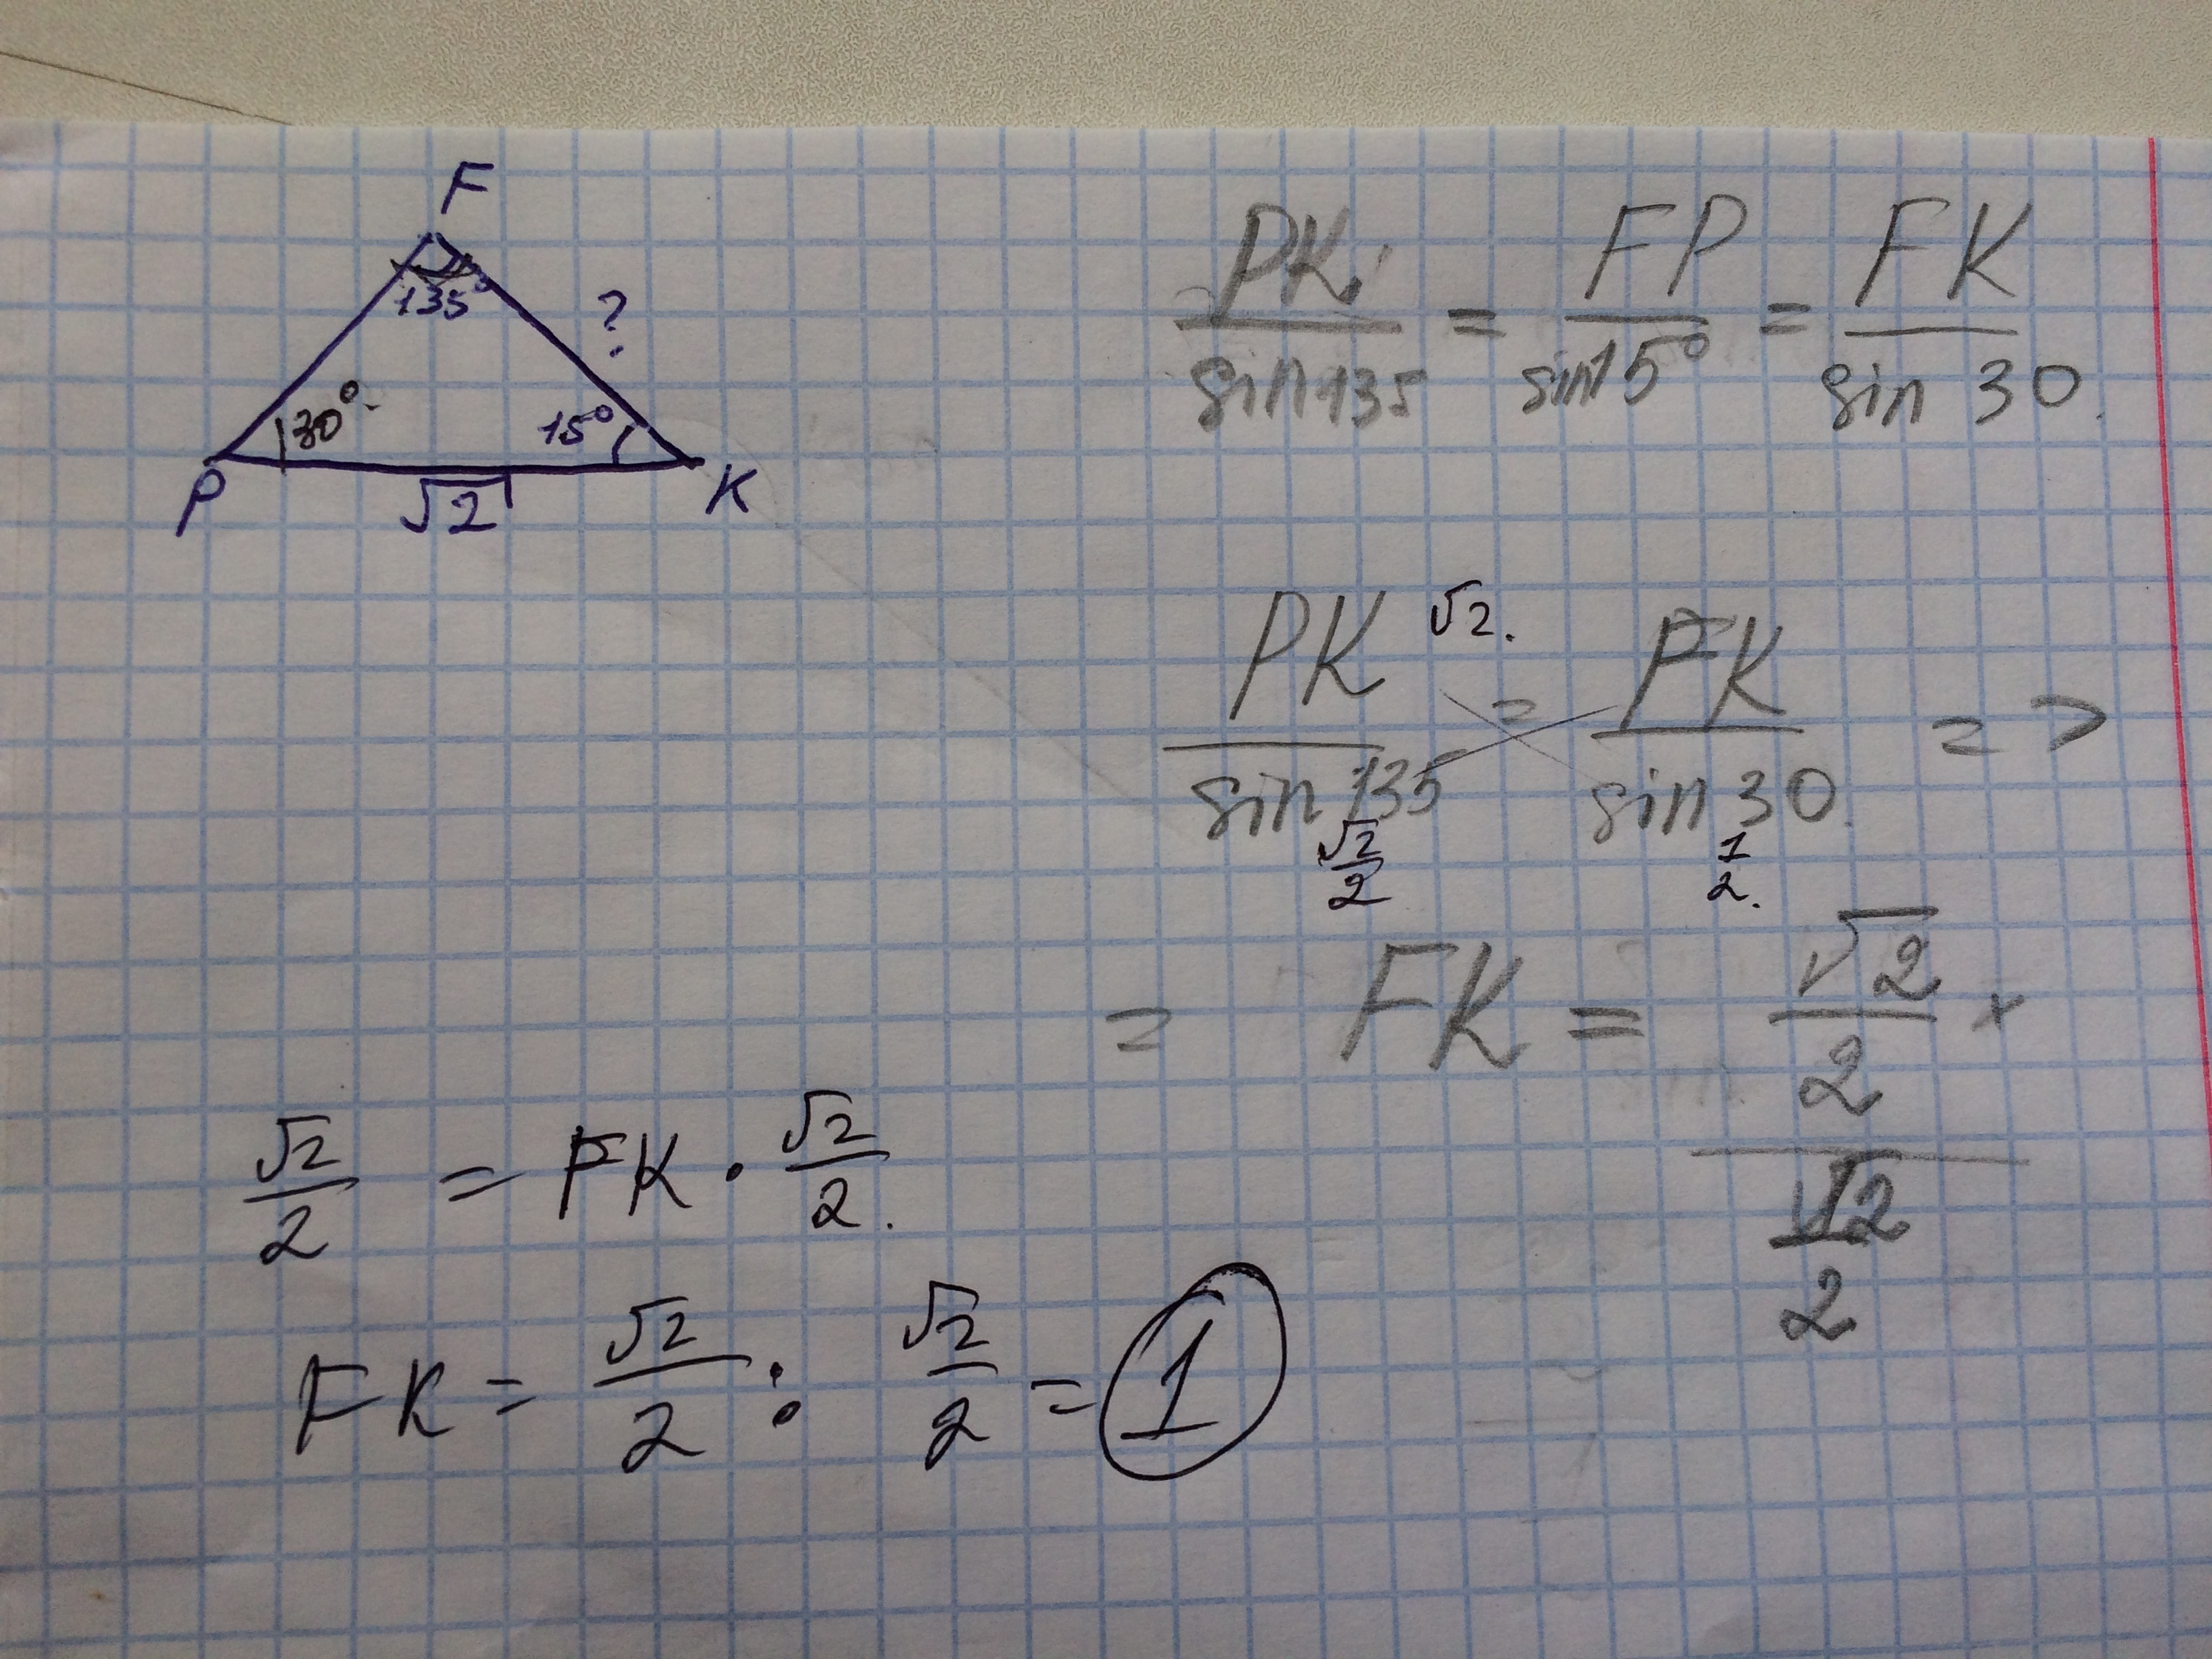 F
135°
?
30°.
15°
P
√2
K
PK
sin135
=
FP
sin15°
=
FK
sin 30.
PK √2.
sin 135
√2
2
=
FK
sin 30.
1
2.
=>
= FK =
√2
2
x
√2
2
√2
2
= FK •
√2
2.
FK =
√2
2
:
√2
2
= 1